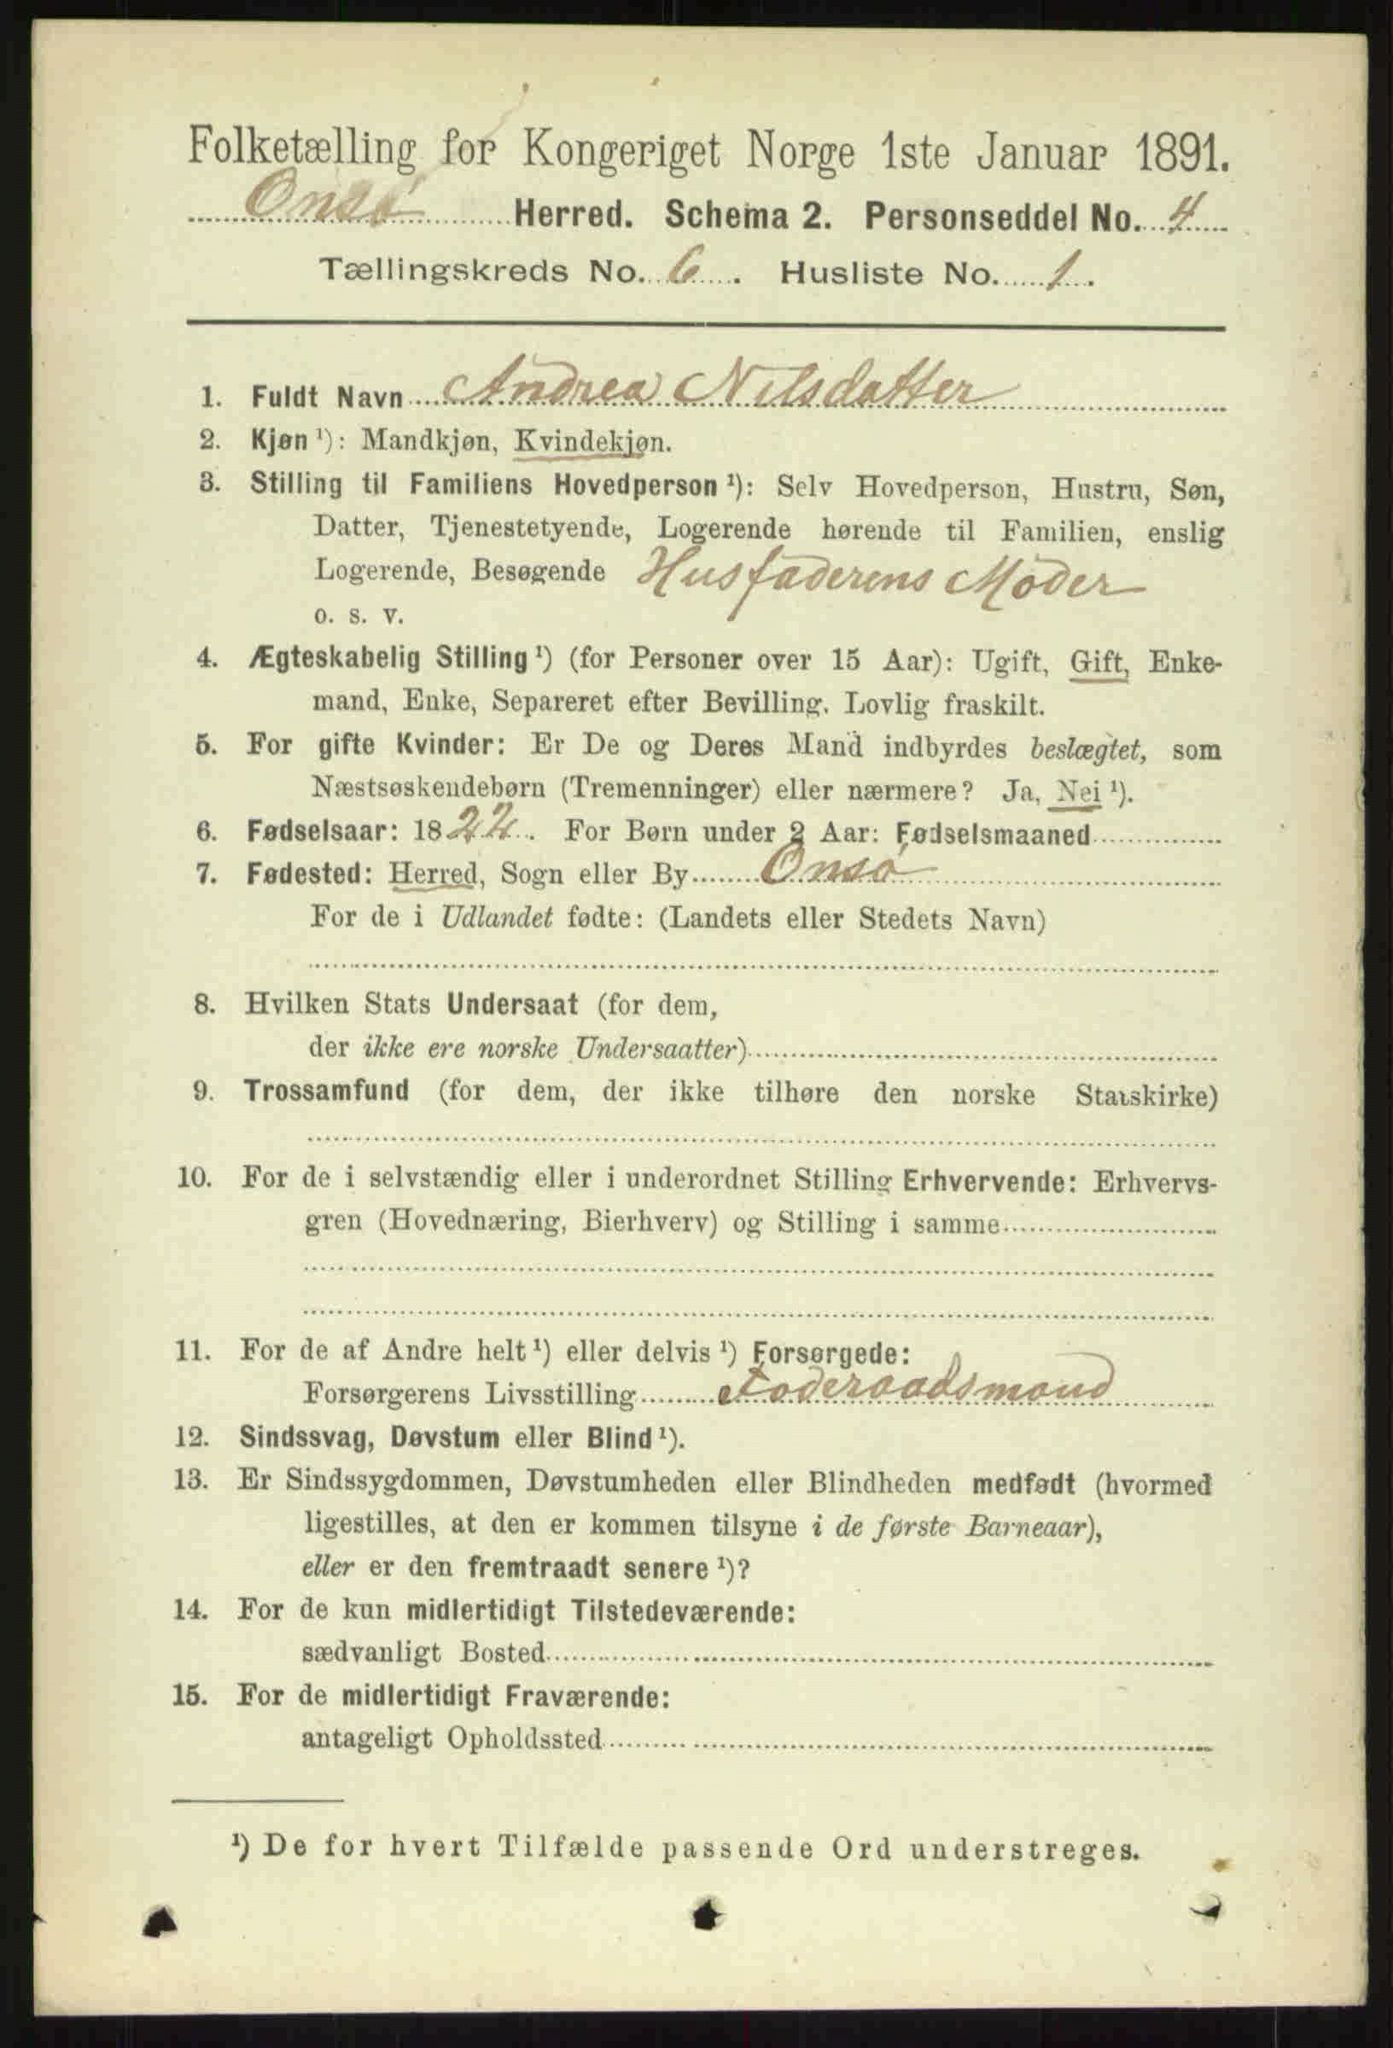 Folketælling for Kongeriget Norge 1ste Januar 1891.
Onsø Herred. Schema 2. Personseddel No. 4
Tællingskreds No. 6. Husliste No. 1.
1. Fuldt Navn Andrea Nilsdatter
2. Kjøn ¹): Mandkjøn, Kvindekjøn.
3. Stilling til Familiens Hovedperson ¹): Selv Hovedperson, Hustru, Søn,
Datter, Tjenestetyende, Logerende hørende til Familien, enslig
Logerende, Besøgende Husfaderens Moder
o. s. v.
4. Ægteskabelig Stilling ¹) (for Personer over 15 Aar): Ugift, Gift, Enke-
mand, Enke, Separeret efter Bevilling. Lovlig fraskilt.
5. For gifte Kvinder: Er De og Deres Mand indbyrdes beslægtet, som
Næstsøskendebørn (Tremenninger) eller nærmere? Ja, Nei ¹).
6. Fødselsaar: 1822. For Børn under 2 Aar: Fødselsmaaned
7. Fødested: Herred, Sogn eller By Onsø
For de i Udlandet fødte: (Landets eller Stedets Navn)
8. Hvilken Stats Undersaat (for dem,
der ikke ere norske Undersaatter)
9. Trossamfund (for dem, der ikke tilhøre den norske Statskirke)
10. For de i selvstændig eller i underordnet Stilling Erhvervende: Erhvervs-
gren (Hovednæring, Bierhverv) og Stilling i samme
11. For de af Andre helt ¹) eller delvis ¹) Forsørgede:
Forsørgerens Livsstilling Foderaadsmand
12. Sindssvag, Døvstum eller Blind ¹).
13. Er Sindssygdommen, Døvstumheden eller Blindheden medfødt (hvormed
ligestilles, at den er kommen tilsyne i de første Barneaar),
eller er den fremtraadt senere ¹)?
14. For de kun midlertidigt Tilstedeværende:
sædvanligt Bosted
15. For de midlertidigt Fraværende:
antageligt Opholdssted
¹) De for hvert Tilfælde passende Ord understreges.